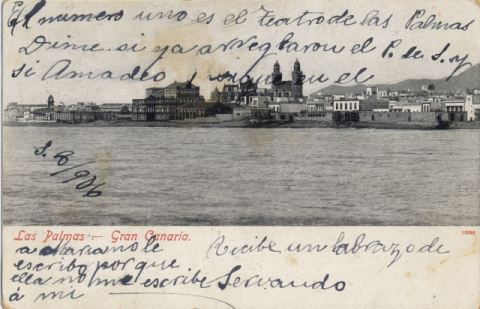 El numero uno es el teatro de las Palmas
Dime si ya arreglaron el P. de S. y
si Amadeo y siguen el
S. 8/906
Las Palmas — Gran Canaria.
a Mariano le
escribo porque
ella no me escribe
á mi
Recibe un labrazo de
Servando